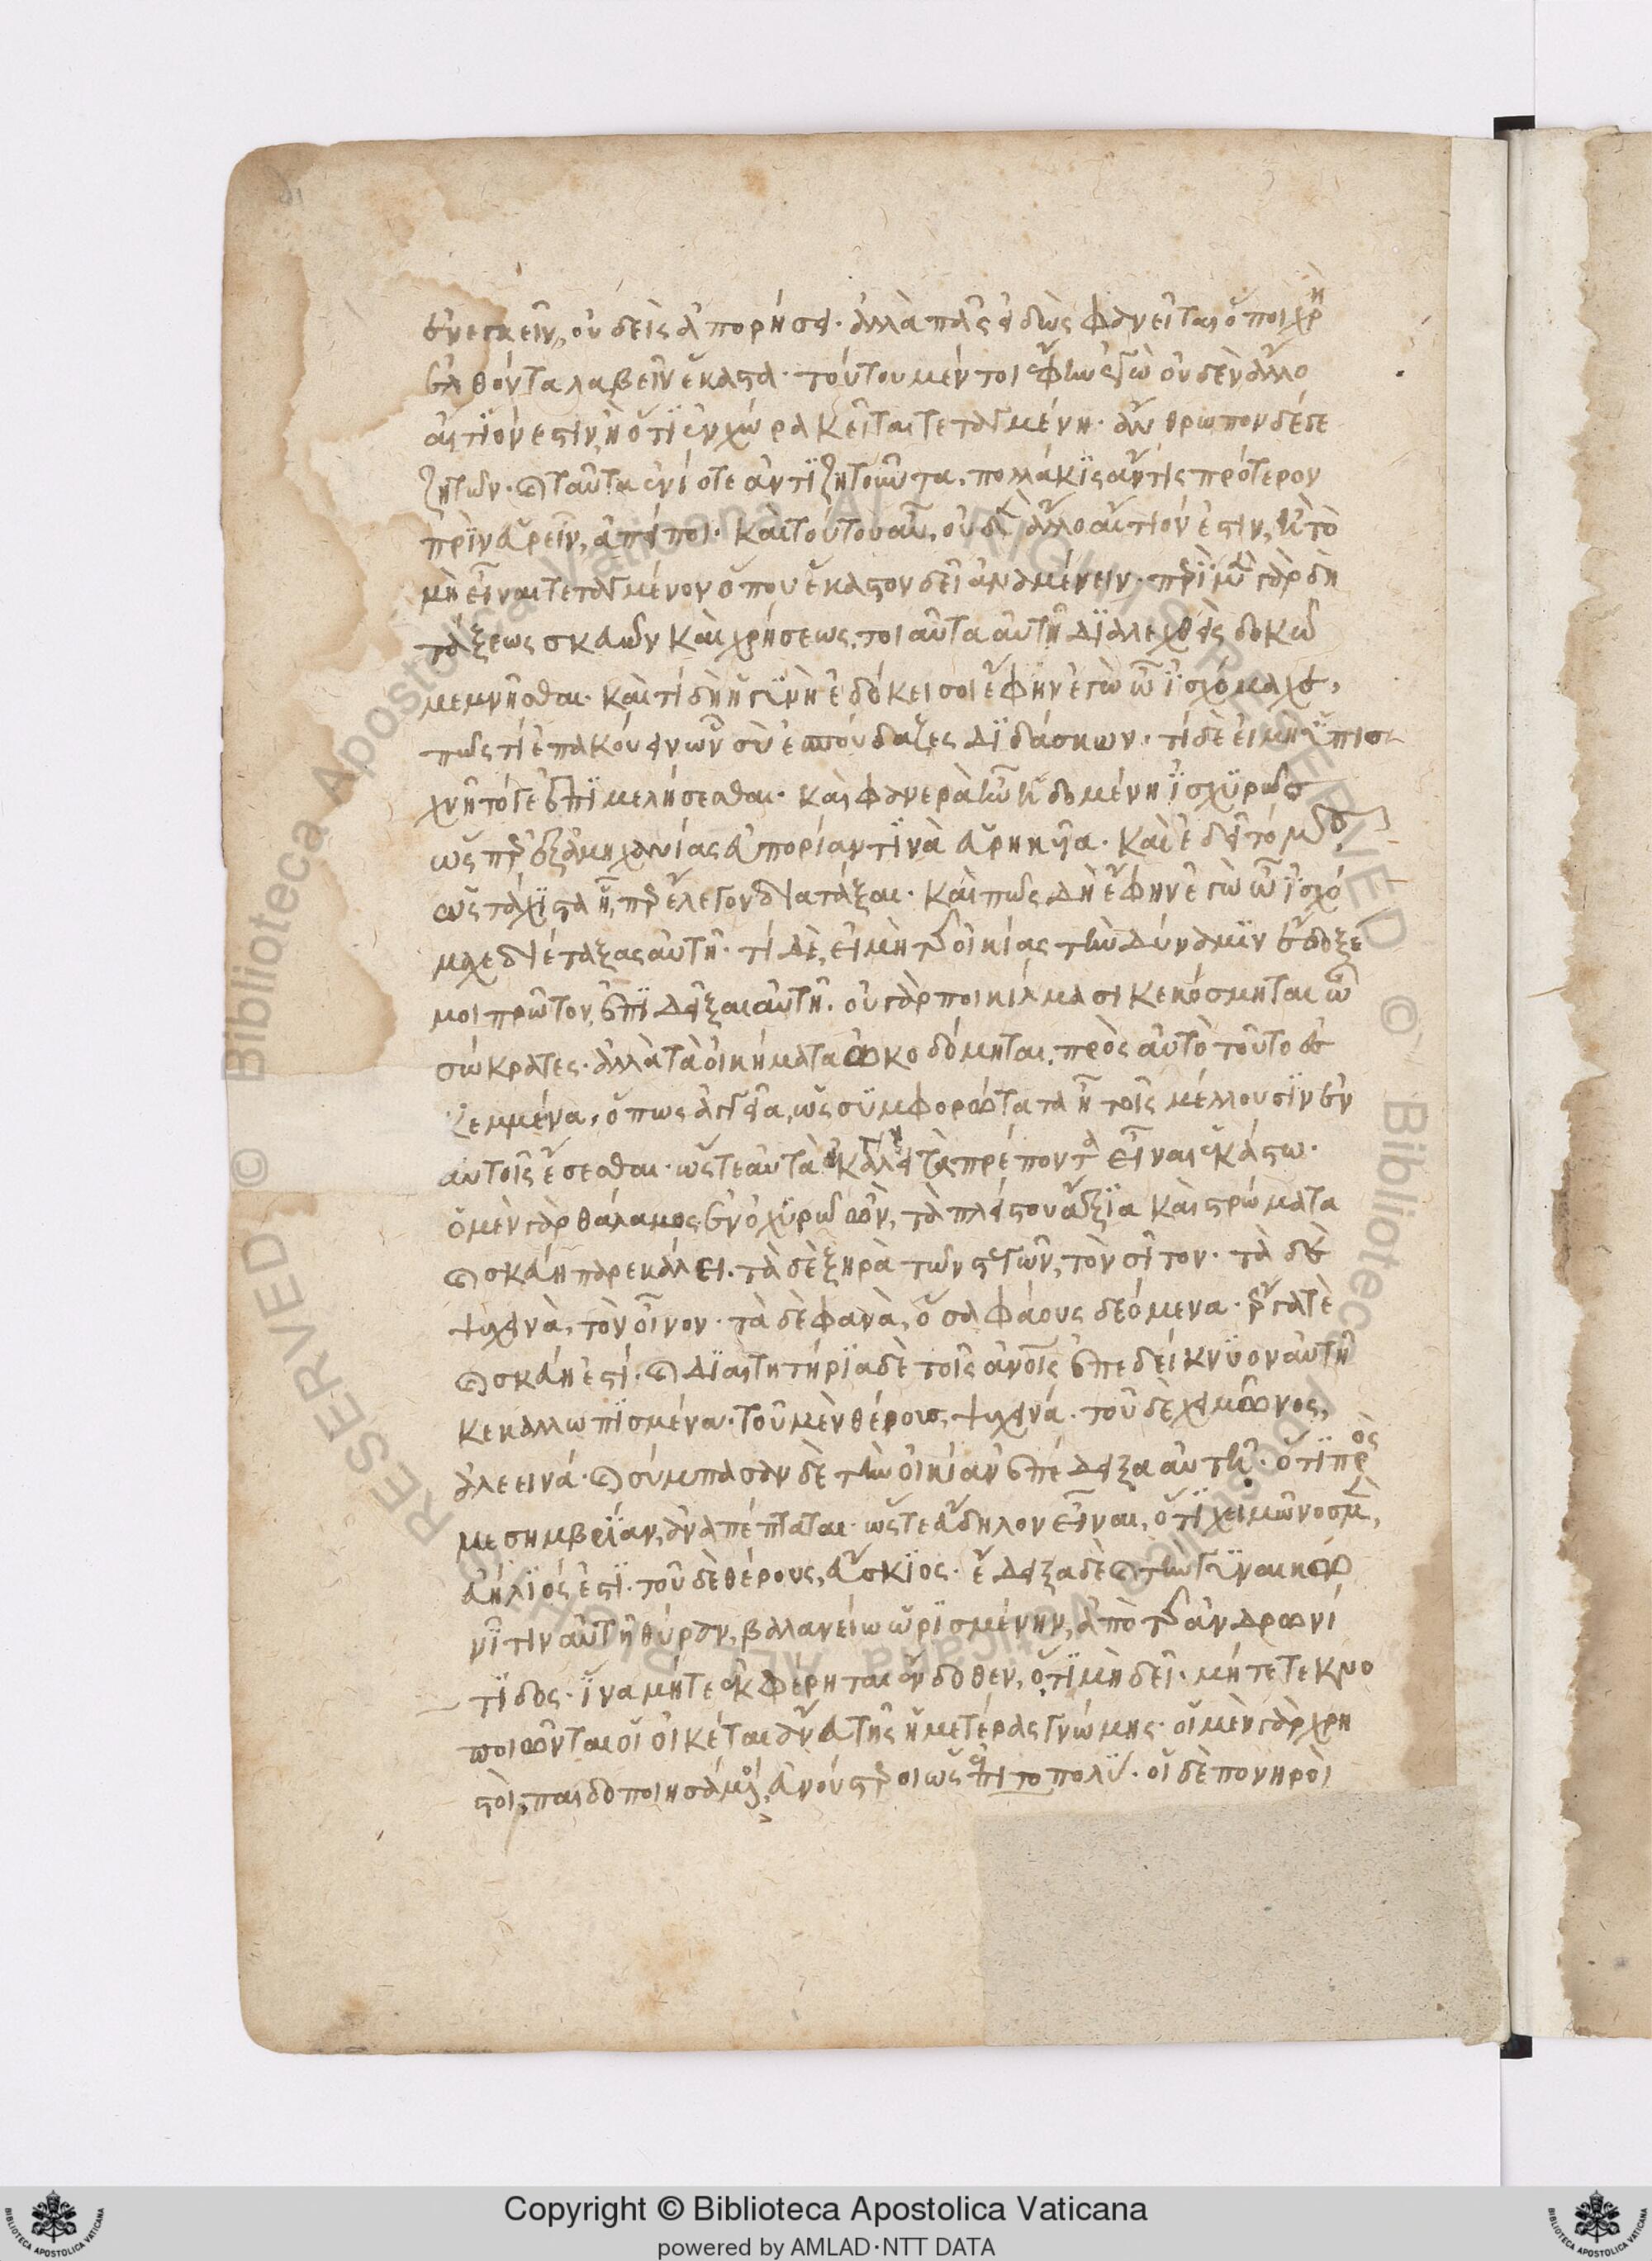 ἐνεγκεῖν, οὐδεὶς ἀπορήσει· ἀλλὰ πᾶς εἰδὼς φανεῖται ὅποι χρὴ
ἐλθόντα λαβεῖν ἕκαστα· τούτου μέντοι ἔφην ἐγὼ οὐδὲν ἄλλο
αἴτϊόν ἐστιν, ἢ ὅτϊ ἐν χώρα κεῖται τεταγμένη· ἄνθρωπον δέ γε
ζητῶν· καὶ ταῦτα ἐνίοτε ἀντϊζητοῦντα, πολλάκϊς ἄν τις πρότερον
πρὶν εὑρεῖν, ἀπείποι· καὶ τούτου αὖ, οὐδὲν ἄλλο αἴτιόν ἐστιν, ἢ τὸ
μὴ εἶναι τεταγμένον ὅπου ἕκαστον δεῖ ἀναμένειν· περὶ μὲν γὰρ δὴ
τάξεως σκευῶν καὶ χρήσεως, τοιαῦτα αὐτῆ διαλεχθεὶς δοκῶ
μεμνῆσθαι· καὶ τί δὴ ἡ γϋνὴ ἐδόκει σοι ἔφην ἐγὼ ὦ ἰσχόμαχε,
πῶς τι ἐπακούειν ὧν σὺ ἐσπούδαζες διδάσκων· τί δὲ εἰ μὴ ὑπισ
χνεῖτό γε ἐπϊμελήσεσθαι· καὶ φανερὰ ἦν ἡδομένη ἰσχϋρῶς
ὥσπερ ἐξ ἀμηχανίας εὐπορίαν τϊνὰ εὑρηκυῖα· καὶ ἐδεῖτό μου
ὡς τάχιστα ἧπερ ἔλεγον διατάξαι· καὶ πῶς δὴ ἔφην ἐγὼ ὦ ἰσχό
μαχε διέταξας αὐτῆ· τί δὲ, εἰ μὴ τῆς οἰκίας τὴν δύναμϊν ἔδοξε
μοι πρῶτον, ἐπϊδεῖξαι αὐτῆ· οὐ γὰρ ποικίλμασι κεκόσμηται ὦ
σώκρατες· ἀλλὰ τὰ οἰκήματα ὠκοδόμηται, πρὸς αὐτὸ τοῦτο ἐ
σκεμμένα, ὅπως ἀγγεῖα, ὡς συμφορώτατα ἦ τοῖς μέλλουσϊν ἐν
αὐτοῖς ἔσεσθαι· ὥστε αὐτὰ ἐκάλει τὰ πρέποντα εἶναι ἑκάστω·
ὁ μὲν γὰρ θάλαμος ἐν ὀχυρῶ ὢν, τὰ πλείστου ἄξϊα καὶ στρώματα
καὶ σκεύη παρεκάλει· τὰ δὲ ξηρὰ τῶν στεγῶν, τὸν σῖτον· τὰ δὲ
ψυχεινὰ, τὸν οἶνον· τὰ δὲ φανὰ, ὅσα φάους δεόμενα· ἔργα τὲ
καὶ σκεύη ἐστί· καὶ δϊαιτητήρϊα δὲ τοῖς ἀνοις ἐπεδείκνϋον αὐτῆ
κεκαλλωπϊσμένα· τοῦ μὲν θέρους, ψυχεινά· τοῦ δὲ χειμῶνος,
ἀλεεινά· καὶ σύμπασαν δὲ τὴν οἰκίαν ἐπέδειξα αὐτῆ· ὅτϊ πρὸς
μεσημβρϊαν ἀναπέπταται· ὥστε εὔδηλον εἶναι, ὅτϊ χειμῶνος μὲν,
εὐήλϊός ἐστί· τοῦ δὲ θέρους, εὔσκϊος· ἔδειξα δὲ καὶ τὴν γϋναικω
νῖτιν αὐτῆ θύραν, βαλανείω ὡρϊσμένην, ἀπὸ τῆς ἀνδρωνί
τϊδος· ἵνα μήτε ἐκφέρηται ἔνδοθεν, ὅτϊ μὴ δεῖ· μήτε τεκνο
ποιῶνται οἱ οἰκέται ἄνευ τῆς ἡμετέρας γνώμης· οἱ μὲν γὰρ χρη
στοὶ, παιδοποιησάμενοι, εὐνούστεροι ὡς ἐπιτοπολύ· οἱ δὲ πονηροὶ
Copyright © Biblioteca Apostolica Vaticana
powered by AMLAD·NTT DATA